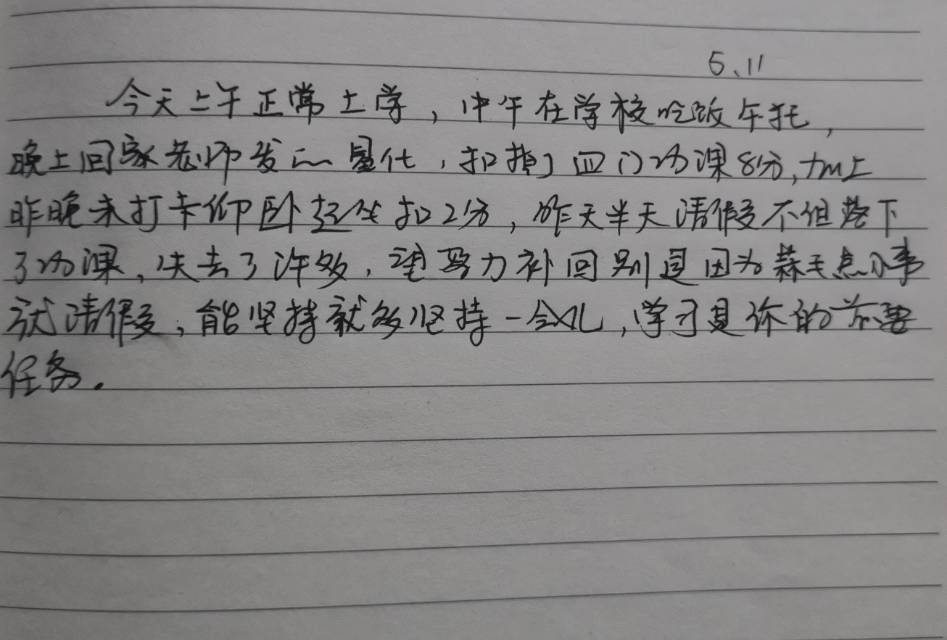 5.11
今天上午正常上学，中午在学校吃饭午托，
晚上回家老师发的量化，扣掉了四门功课8分，加上
昨晚未打卡仰卧起坐扣2分，昨天半天请假不但落下
了功课，失去了许多，望努力补回别是因为蒜毛点小事
就请假，能坚持就多坚持一会儿，学习是你的首要
任务。